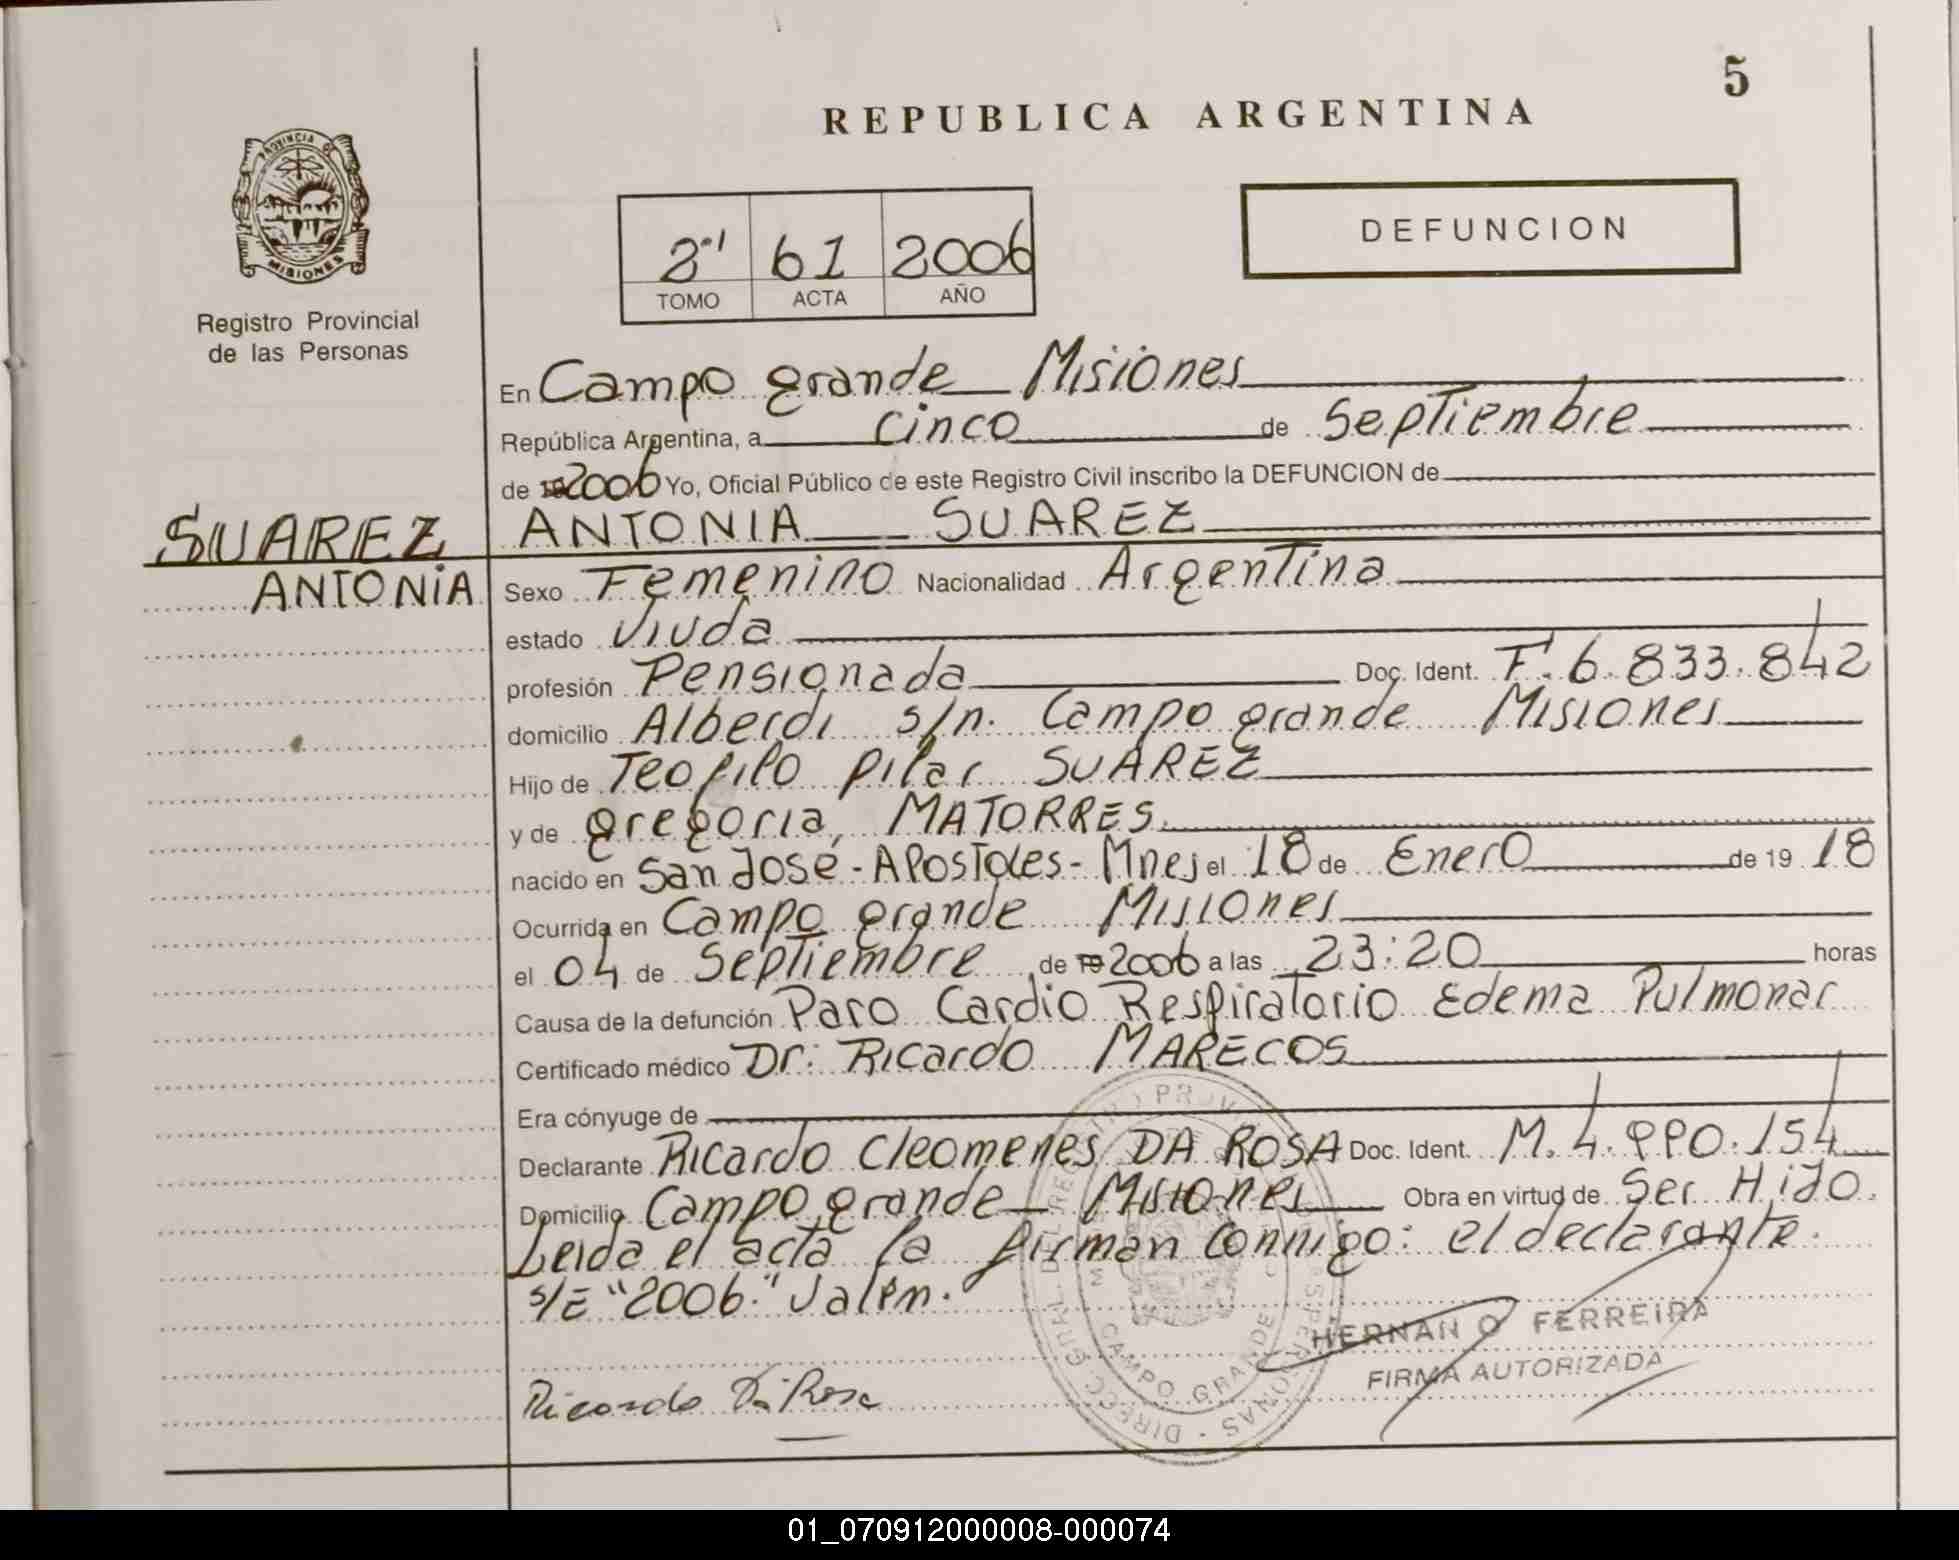 5
REPUBLICA ARGENTINA
PROVINCIA DE
MISIONES
Registro Provincial
de las Personas
2º 61 2006
TOMO ACTA AÑO
DEFUNCION
En Campo grande Misiones
República Argentina, a cinco de Septiembre
de 2006 Yo, Oficial Público de este Registro Civil inscribo la DEFUNCION de
SUAREZ ANTONIA SUAREZ
ANTONIA Sexo Femenino Nacionalidad Argentina
estado Viuda
profesión Pensionada Doc. Ident. F. 6.833.842
domicilio Alberdi s/n. Campo grande Misiones
Hijo de Teofilo Pilar SUAREZ
y de gregoria, MATORRES.
nacido en San José - APostoles - Mnes el 18 de Enero de 19 18
Ocurrida en Campo grande Misiones
el 04 de Septiembre de 2006 a las 23:20 horas
Causa de la defunción Paro Cardio Respiratorio Edema Pulmonar
Certificado médico Dr: Ricardo MARECOS
Era cónyuge de
Declarante Ricardo Cleomenes DA ROSA Doc. Ident. M. 4.990.154
Domicilio Campo grande Misiones Obra en virtud de Ser Hijo.
Leida el acta la firman conmigo: el declarante.
s/E "2006." Valen.
HERNAN O FERREIRA
FIRMA AUTORIZADA
Ricardo Da Rosa
CAMPO GRANDE
01_070912000008-000074